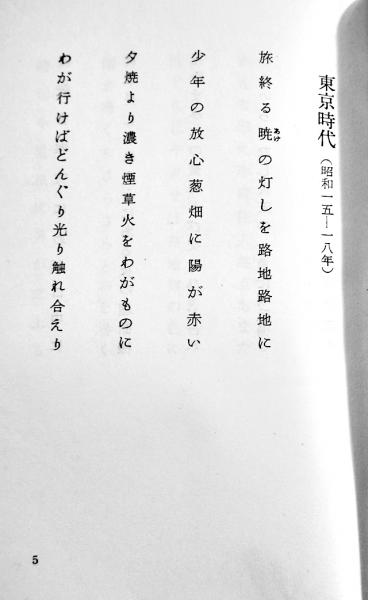 東京時代（昭和一五―一八年）
旅終る暁の灯しを路地路地に
あけ
少年の放心葱畑に陽が赤い
夕焼より濃き煙草火をわがものに
わが行けばどんぐり光り触れ合えり
5